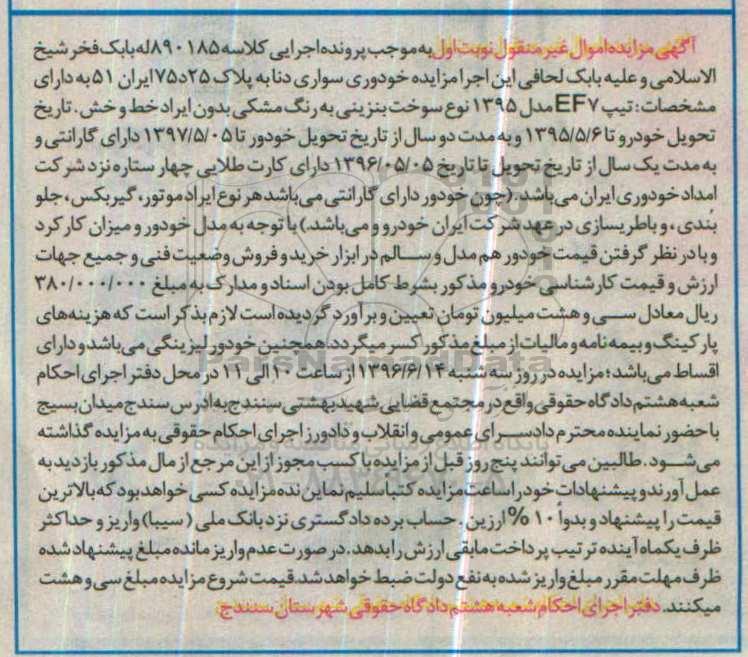 آگهی مزایده اموال غیر منقول نوبت اول به موجب پرونده اجرایی کلاسه ۸۹۰۱۸۵ له بابک فخر شیخ
الاسلامی و علیه بابک لحافی این اجرا مزایده خودوری سواری دنا به پلاک ۲۵د۷۵ ایران ۵۱ به دارای
مشخصات : تیپ EF۷ مدل ۱۳۹۵ نوع سوخت بنزینی به رنگ مشکی بدون ایراد خط و خش . تاریخ
تحویل خودرو تا ۱۳۹۵/۵/۶ و به مدت دو سال از تاریخ تحویل خودور تا ۱۳۹۷/۵/۰۵ دارای گارانتی و
به مدت یک سال از تاریخ تحویل تا تاریخ ۱۳۹۶/۰۵/۰۵ دارای کارت طلایی چهار ستاره نزد شرکت
امداد خودوری ایران می باشد. (چون خودور دارای گارانتی می باشد هر نوع ایراد موتور، گیربکس، جلو
بندی ، و باطریسازی در عهد شرکت ایران خودرو و می باشد.) با توجه به مدل خودور و میزان کارکرد
و با در نظر گرفتن قیمت خودور هم مدل و سالم در ابزار خرید و فروش وضعیت فنی و جمیع جهات
ارزش و قیمت کارشناسی خودرو مذکور بشرط کامل بودن اسناد و مدارک به مبلغ ۳۸۰/۰۰۰/۰۰۰
ریال معادل سی و هشت میلیون تومان تعیین و برآورد گردیده است لازم بذکر است که هزینه های
پارکینگ و بیمه نامه و مالیات از مبلغ مذکور کسر میگردد. همچنین خودور لیزینگی می باشد و دارای
اقساط می باشد؛ مزایده در روز سه شنبه ۱۳۹۶/۶/۱۴ از ساعت ۱۰ الی ۱۱ در محل دفتر اجرای احکام
شعبه هشتم دادگاه حقوقی واقع در مجتمع قضایی شهید بهشتی سنندج به ادرس سندج میدان بسیج
با حضور نماینده محترم دادسرای عمومی و انقلاب و دادورز اجرای احکام حقوقی به مزایده گذاشته
می شود . طالبین می توانند پنج روز قبل از مزایده با کسب مجوز از این مرجع از مال مذکور بازدید به
عمل آورند و پیشنهادات خود را ساعت مزایده کتبا سلیم نماین نده مزایده کسی خواهد بود که بالاترین
قیمت را پیشنهاد و بدوأ ۱۰ % ارزین . حساب برده دادگستری نزد بانک ملی ( سیبا ) واریز و حداکثر
ظرف یکماه آینده ترتیب پرداخت مابقی ارزش را بدهد . در صورت عدم واریز مانده مبلغ پیشنهاد شده
ظرف مهلت مقرر مبلغ واریز شده به نفع دولت ضبط خواهد شد. قیمت شروع مزایده مبلغ سی و هشت
میکنند. دفتر اجرای احکام شعبه هشتم دادگاه حقوقی شهرستان سنندج
ParsNamadData